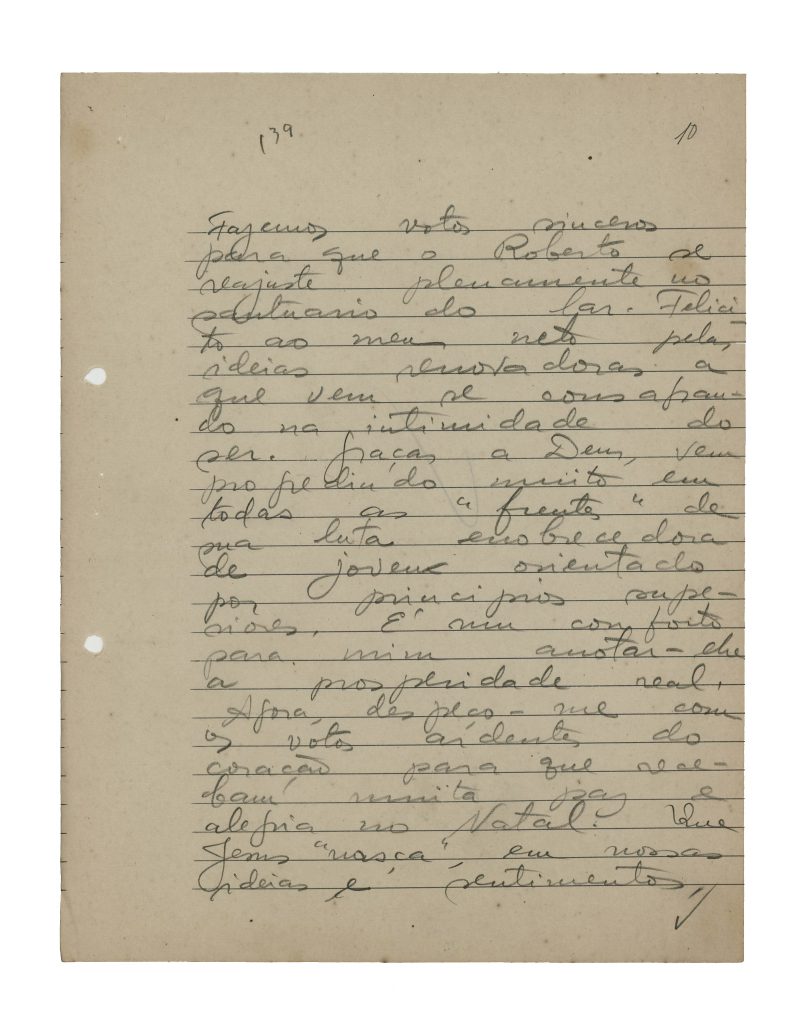 139
10
Fazemos votos sinceros
para que o Roberto se
reajuste plenamente no
santuario do lar. Felici
to ao meu neto pelas
ideias renovadoras a
que vem se consagran-
do na intimidade do
ser. Graças a Deus, vem
progredindo muito em
todas as "frentes" de
sua luta enobrecedora
de jovem orientado
por principios supe-
riores. É um conforto
para mim anotar-lhe
a prosperidade real.
Agora, despeço-me com
os votos ardentes do
coração para que rece-
bam muita paz e
alegria no Natal. Que
Jesus "nasça", em nossas
ideias e sentimentos,